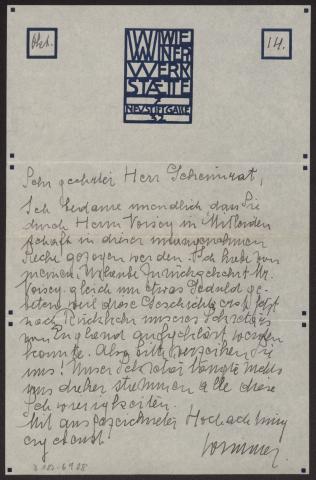 Okt.
WIENER
WERK
STÆTTE
7
NEUSTIFTGASSE
32
14.
Sehr geehrter Herr Geheimrat,
Ich bedaure unendlich, dass Sie
durch Herrn Voisey in Mitleiden
schaft in dieser unangenehmen
Sache gezogen werden. Ich habe von
meinem Urlaube zurückgekehrt Mr.
Voisey gleich um etwas Geduld ge-
beten, weil diese Geschichte erst jetzt
nach Rückkehr unseres Sekretärs
von England aufgeklärt werden
konnte. Also bitte verzeihen Sie
uns! Unser Sekretär
uns daher stammen alle diese
Schwierigkeiten.
Mit ausgezeichneter Hochachtung
ergebenst